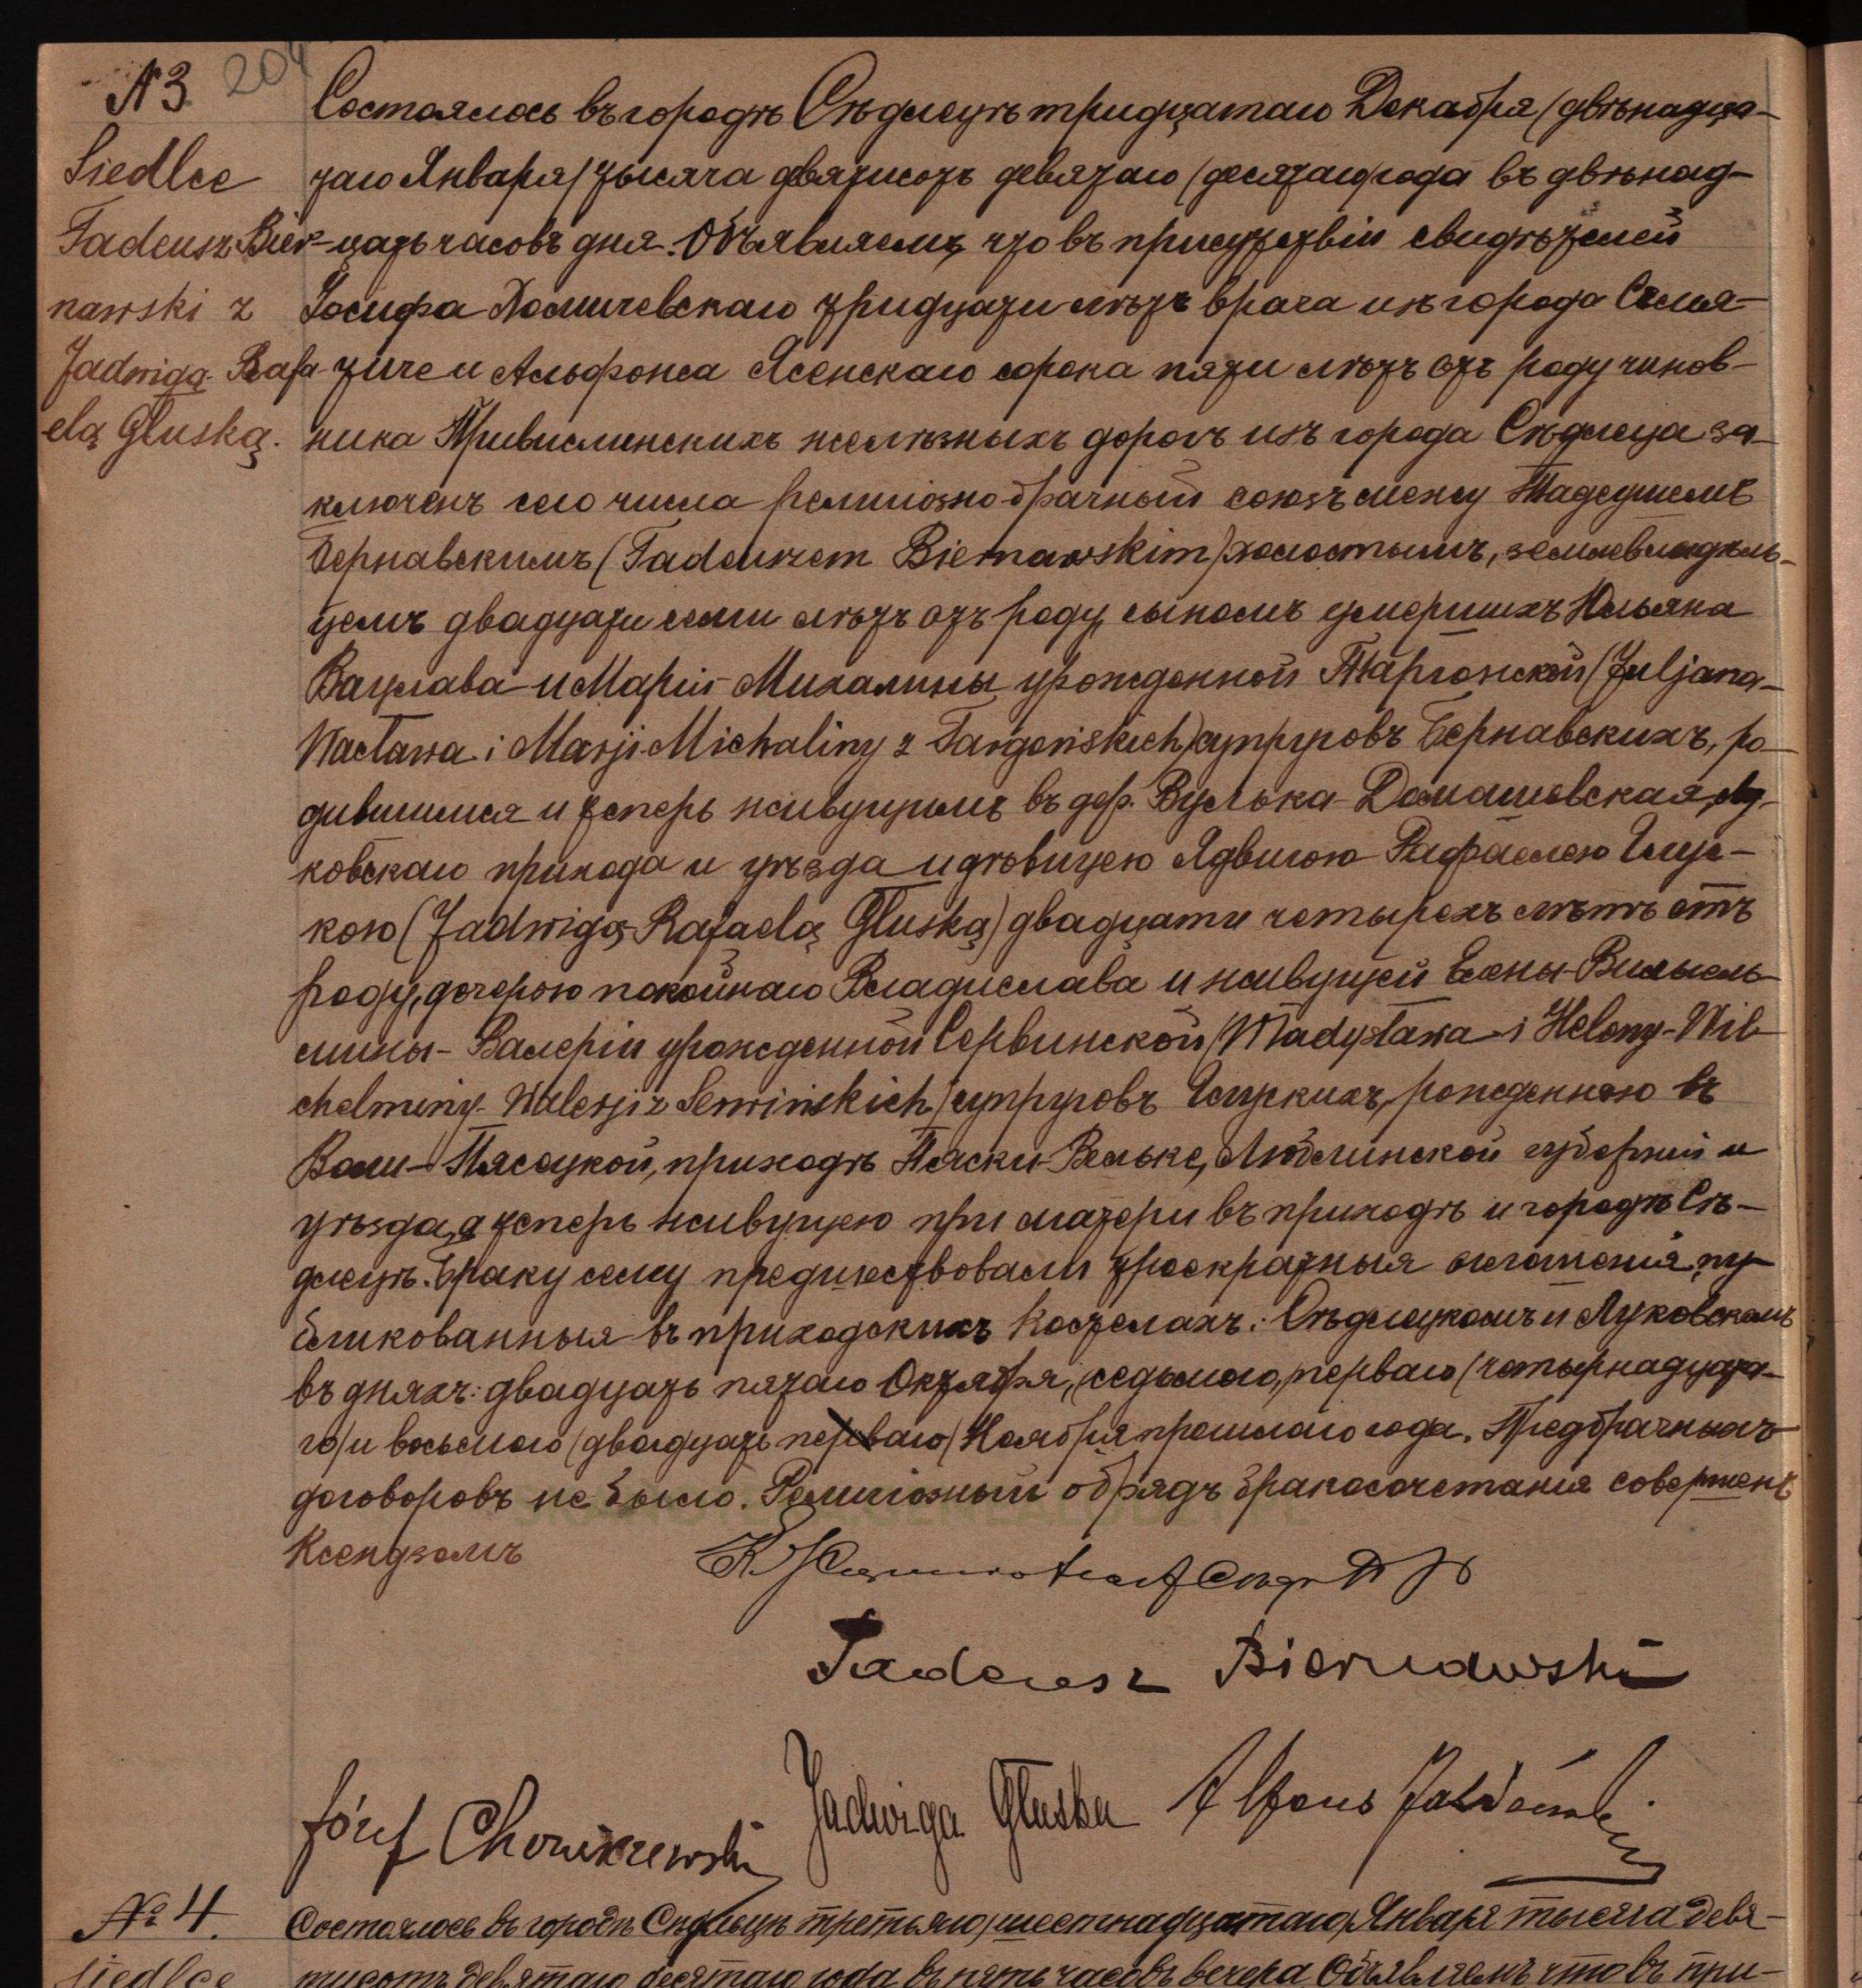 № 3 204
Siedlce
Tadeusz Bier-
nawski z
Jadwigą Rafa
elą Głuską.
Состоялось въ городѣ Сѣдлецѣ тридцатаго Декабря (двѣнадца-
таго Января) тысяча девятисотъ девятаго (десятаго) года въ двѣнад-
цать часовъ дня. Объявляемъ, что въ присутствіи свидѣтелей
Іосифа Хомичевскаго тридцати лѣтъ врача изъ города Семя-
тиче и Альфонса Ясенскаго сорока пяти лѣтъ отъ роду чинов-
ника Привислинскихъ желѣзныхъ дорогъ изъ города Сѣдлеца за-
ключенъ сего числа религіозно брачный союзъ между Тадеушемъ
Бернавскимъ (Tadeuszem Biernawskim) холостымъ, землевладѣль-
цемъ двадцати семи лѣтъ отъ роду, сыномъ умершихъ Юльяна
Вацлава и Маріи-Михалины урожденной Таргонской (Juljana-
Wacława i Marji-Michaliny z Targońskich) супруговъ Бернавскихъ, ро-
дившимся и теперь живущимъ въ дер. Вулька-Домашевская, Лу-
ковскаго прихода и уѣзда и дѣвицею Ядвигою-Рафаелею Глус-
кою (Jadwigą-Rafaelą Głuską) двадцати четырехъ лѣтъ отъ
роду, дочерою покойнаго Владислава и живущей Елены-Вильгель-
мины-Валеріи урожденной Сервинской (Władysława i Heleny-Wil-
chelminy-Walerji z Serwińskich) супруговъ Глускихъ, рожденною въ
Воли-Пясецкой, приходѣ Пяски-Вельке, Люблинской губерніи и
уѣзда, а теперь живущею при матери въ приходѣ и городѣ Сѣ-
длецѣ. Браку сему предшествовали троекратныя оглашенія, пу-
бликованныя въ приходскихъ костелахъ: Сѣдлецкомъ и Луковскомъ
въ дняхъ: двадцать пятаго Октября, (седьмого), перваго (четырнадцата-
го) и восьмого (двадцать перваго) Ноября прошлаго года. Предбрачныхъ
договоровъ не было. Религіозный обрядъ бракосочетанія совершенъ
Ксендзомъ
Tadeusz Biernawski
Józef Chomiczewski Jadwiga Głuska Alfons Jasieński
№ 4.
Siedlce
Состоялось въ городѣ Сѣдльцѣ третьяго (шестнадцатаго) Января тысяча девя-
тисотъ девятаго десятаго года въ пять часовъ вечера Объявляемъ что въ при-